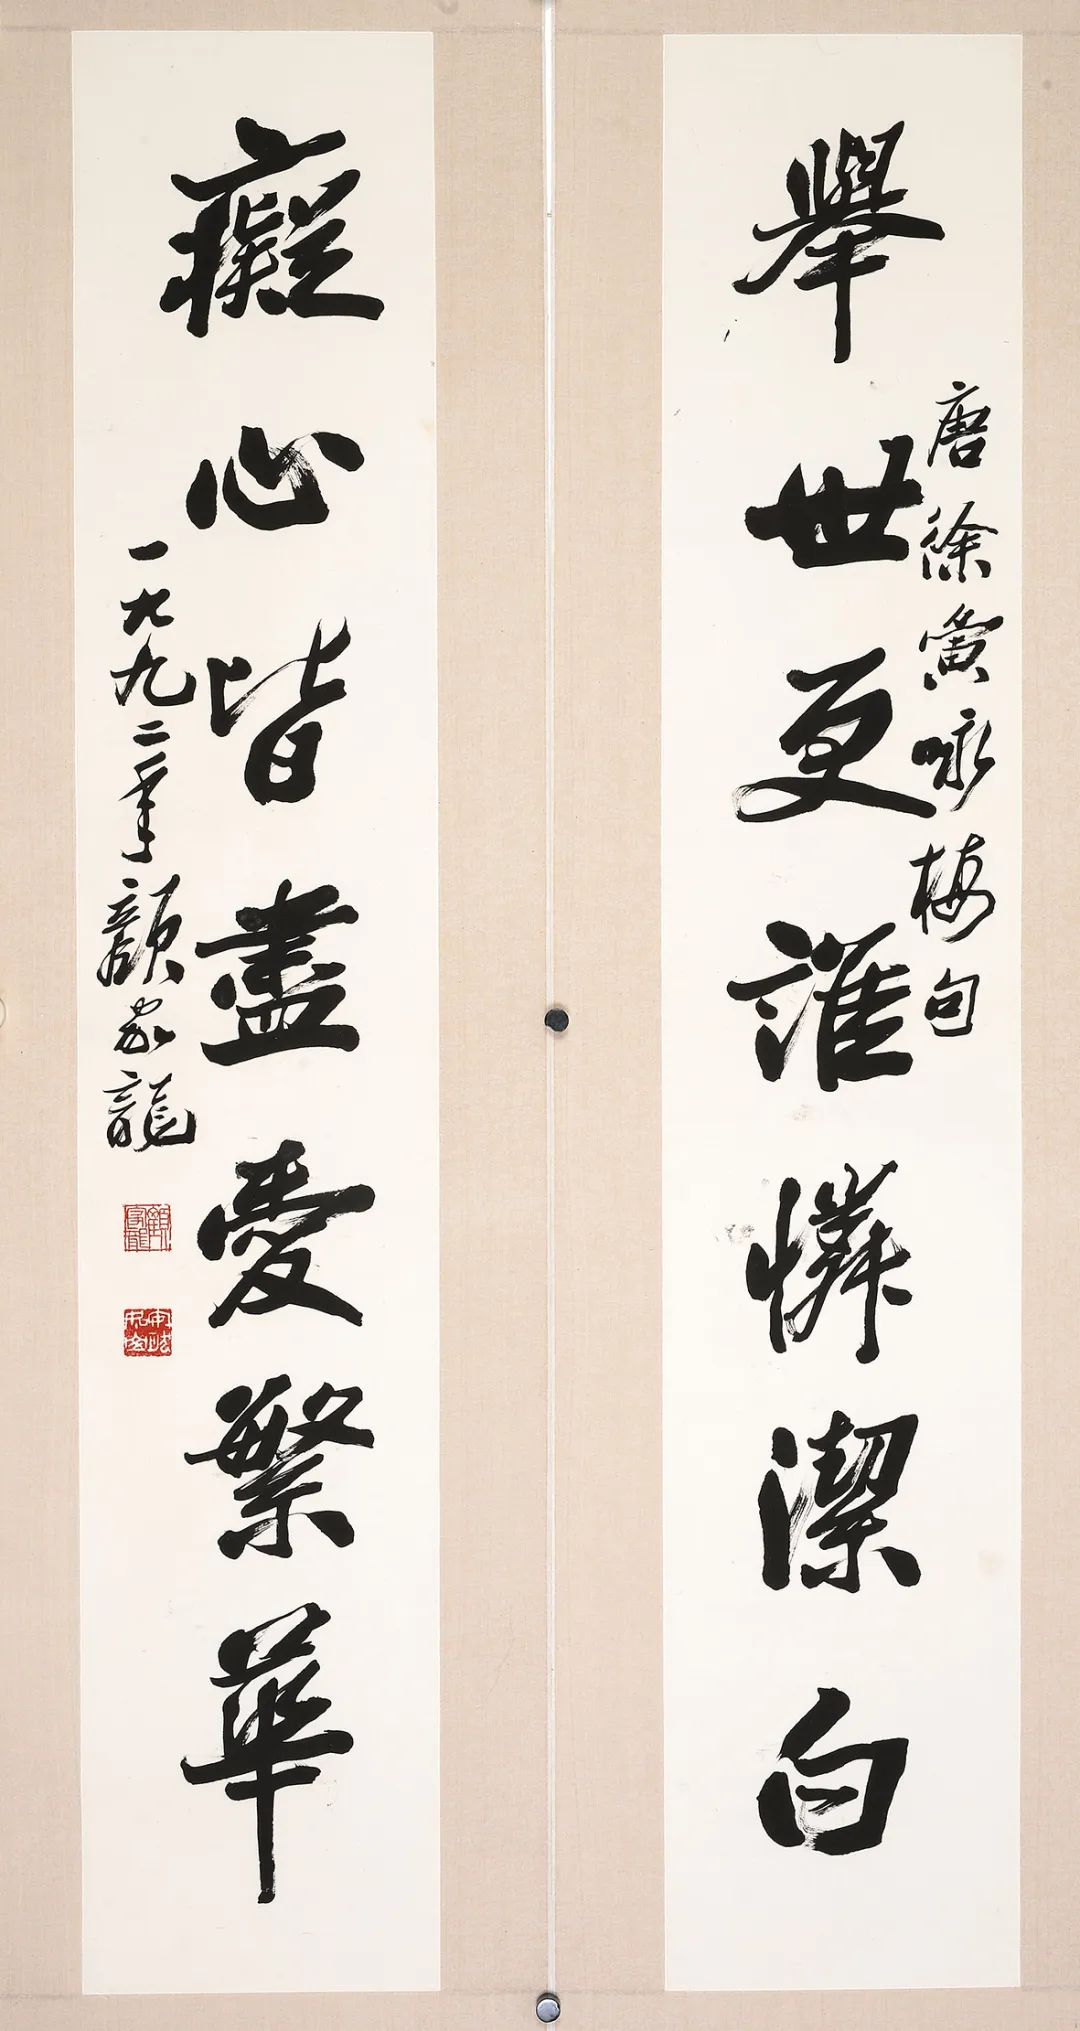 唐徐夤咏梅句
舉世更誰憐潔白
癡心皆盡愛繁華
一九九二年顏家龍
顏家龍